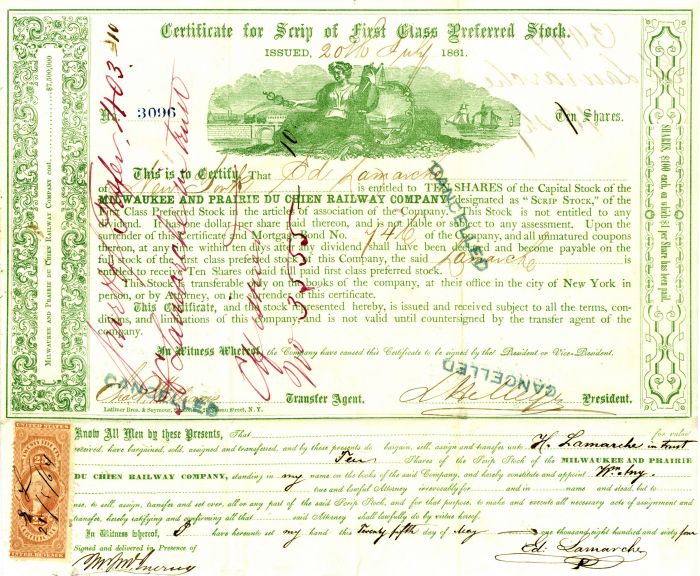 Certificate for Scrip of First Class Preferred Stock.
ISSUED, 20th July 1861.
No. 3096
Ten Shares.
This is to Certify, That Ed Lamarche
of New York is entitled to TEN SHARES of the Capital Stock of the
MILWAUKEE AND PRAIRIE DU CHIEN RAILWAY COMPANY, designated as "SCRIP STOCK," of the
First Class Preferred Stock in the articles of association of the Company. This Stock is not entitled to any
dividend. It has one dollar per share paid thereon, and is not liable or subject to any assessment. Upon the
surrender of this certificate and Mortgage Bond No. of the Company, and all unmatured coupons
thereon, at any time within ten days after any dividend shall have been declared and become payable on
the full stock of the first class preferred stock of this Company, the said Lamarche is
entitled to receive Ten Shares of said full paid first class preferred stock.
This Stock is transferable only on the books of the company, at their office in the city of New York in
person, or by Attorney, on the surrender of this certificate.
This Certificate, and the stock represented hereby, is issued and received subject to all the terms, con-
ditions, and limitations of this company and is not valid until countersigned by the transfer agent of the
company.
In Witness Whereof, the Company have caused this Certificate to be signed by the President or Vice-President.
Transfer Agent.
President.
Latimer Bros. & Seymour, Nassau Street, N. Y.
MILWAUKEE AND PRAIRIE DU CHIEN RAILWAY COMPANY cost $7,500,000
SHARES, $100 each, on which $1 per Share has been paid.
CANCELLED
CANCELLED
CANCELLED
H Lamarche in trust
No 3535
10
403
$10
UNITED STATES
INTER. REVENUE
Know All Men by these Presents, That for value
received, have bargained, sold, assigned and transferred, and by these presents do bargain, sell, assign and transfer unto H. Lamarche in trust
Ten Shares of the Scrip Stock of the MILWAUKEE AND PRAIRIE
DU CHIEN RAILWAY COMPANY, standing in my name on the books of the said Company, and hereby constitute and appoint
true and lawful Attorney irrevocably for and in name and stead, but to
use, to sell, assign, transfer and set over, all or any part of the said Scrip Stock, and for that purpose, to make and execute all necessary acts of assignment and
transfer, hereby ratifying and confirming all that said Attorney shall lawfully do by virtue hereof.
In Witness whereof, I have hereunto set my hand this Twenty fifth day of May one thousand eight hundred and sixty four
Signed and delivered in Presence of
Ed. Lamarche